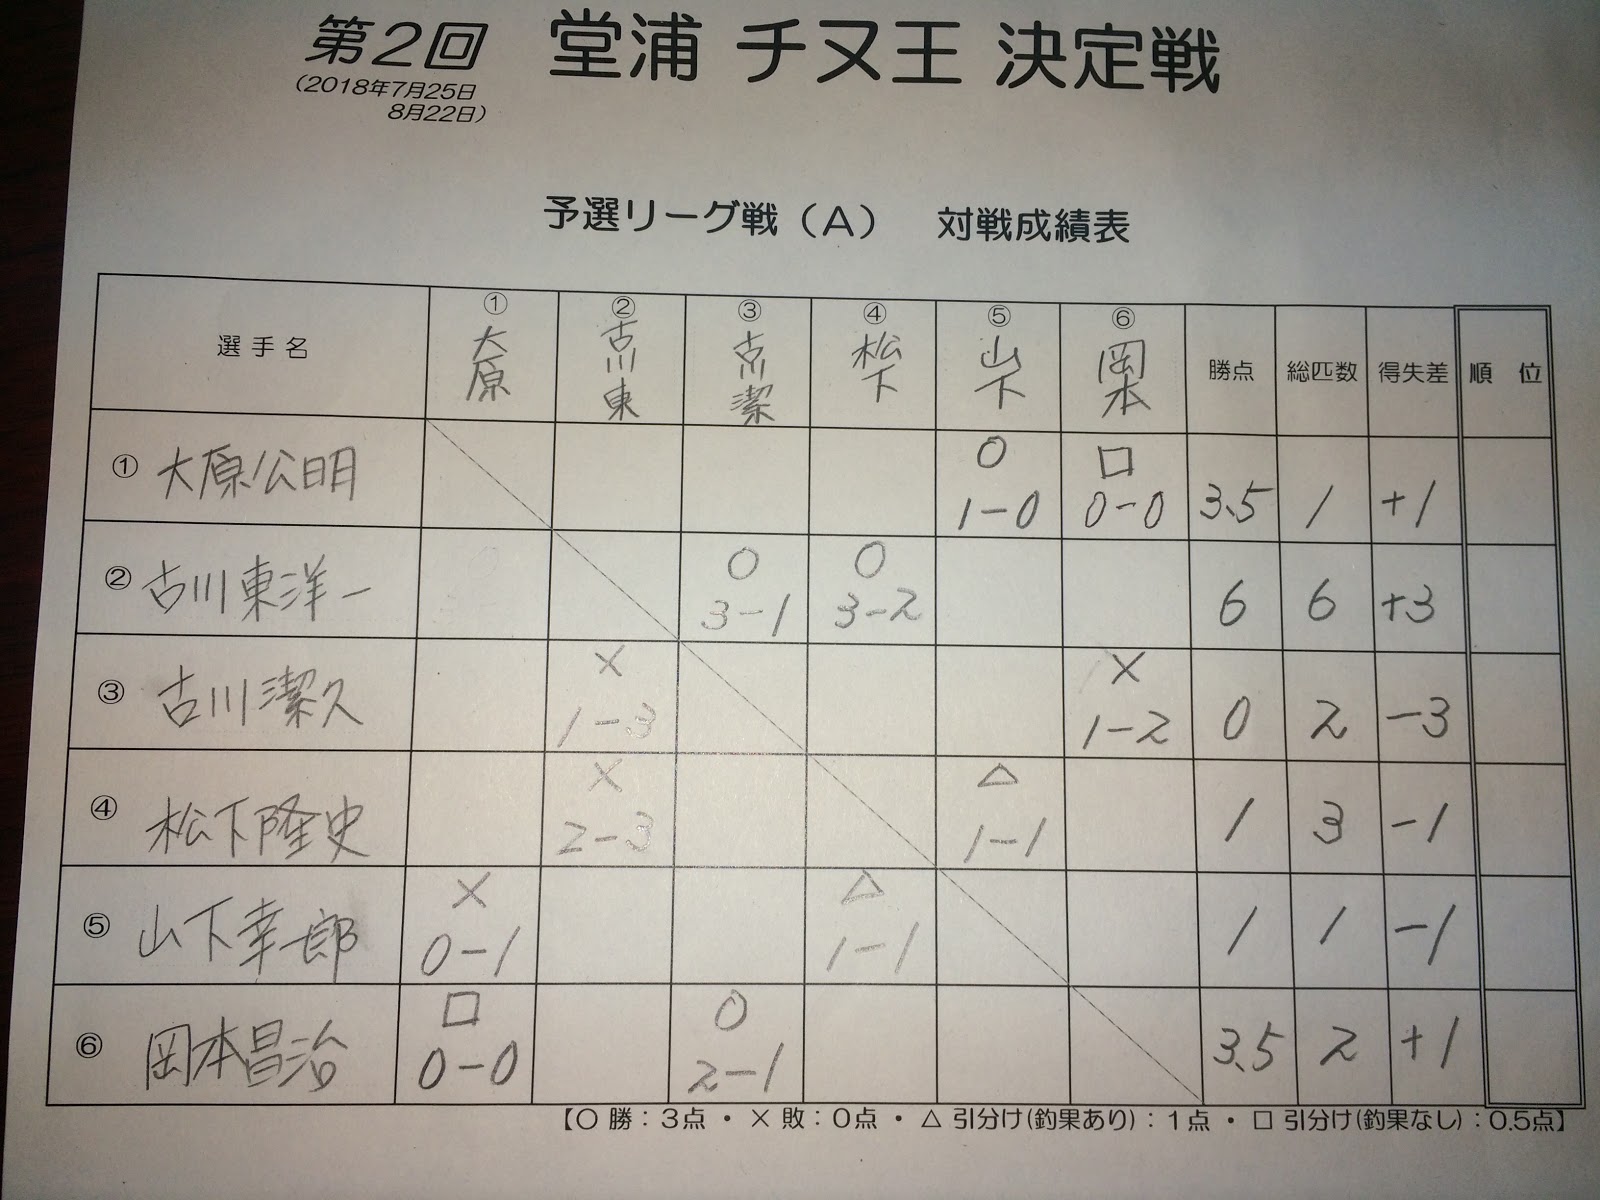 第2回 堂浦 チヌ王 決定戦
(2018年7月25日
8月22日)
予選リーグ戦（A） 対戦成績表
選手名 ① 大原 ② 古川東 ③ 古川潔 ④ 松下 ⑤ 山下 ⑥ 岡本 勝点 総匹数 得失差 順位
① 大原公明 ○ 1-0 □ 0-0 3.5 1 +1
② 古川東洋一 ○ 3-1 ○ 3-2 6 6 +3
③ 古川潔久 × 1-3 × 1-2 0 2 -3
④ 松下隆史 × 2-3 △ 1-1 1 3 -1
⑤ 山下幸一郎 × 0-1 △ 1-1 1 1 -1
⑥ 岡本昌治 □ 0-0 ○ 2-1 3.5 2 +1
【○ 勝：3点 ・ × 敗：0点 ・ △ 引分け(釣果あり)：1点 ・ □ 引分け(釣果なし)：0.5点】